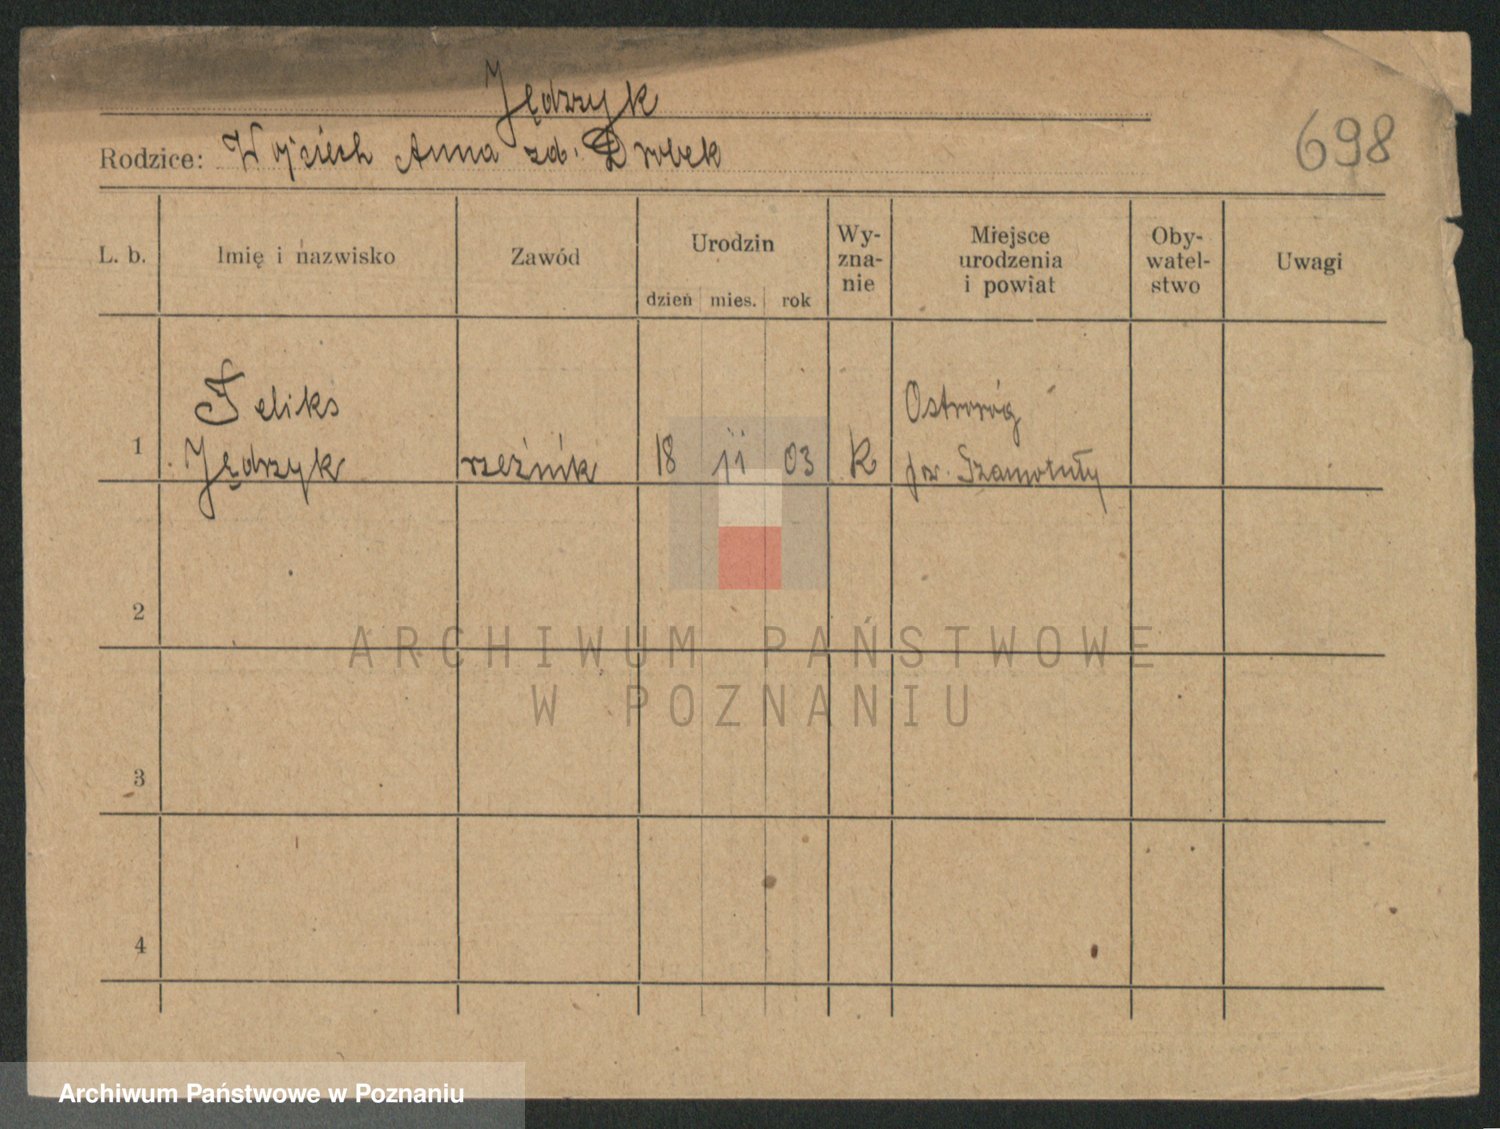 Jędrzyk
698
Rodzice: Wojciech Anna zd. Drobek
L. b.
Imię i nazwisko
Zawód
Urodzin
dzień mies. rok
Wy-
zna-
nie
Miejsce
urodzenia
i powiat
Oby-
watel-
stwo
Uwagi
1
Feliks
Jędrzyk
rzeźnik
18 11 03
k
Ostroróg
pow. Szamotuły
2
3
4
ARCHIWUM PAŃSTWOWE
W POZNANIU
Archiwum Państwowe w Poznaniu